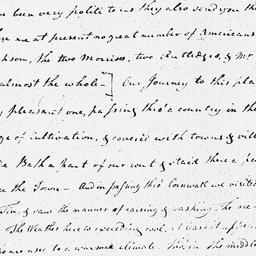 been very polite to us they also send you th
me at present no great number of Americans
kson, the two Morrises, two Rutledges, & Mr
almost the whole — ] Our Journey to this pla
y pleasant one, passing thro' a country in the
ge of cultivation, & cover'd with towns & vill
Bath a part of our rout & staid there a
the Town — And in passing thro' Cornwall we visited
Tin, & saw the manner of raising & washing the
The Weather here is exceeding cool, it
are used to a warmer climate this, in the middle